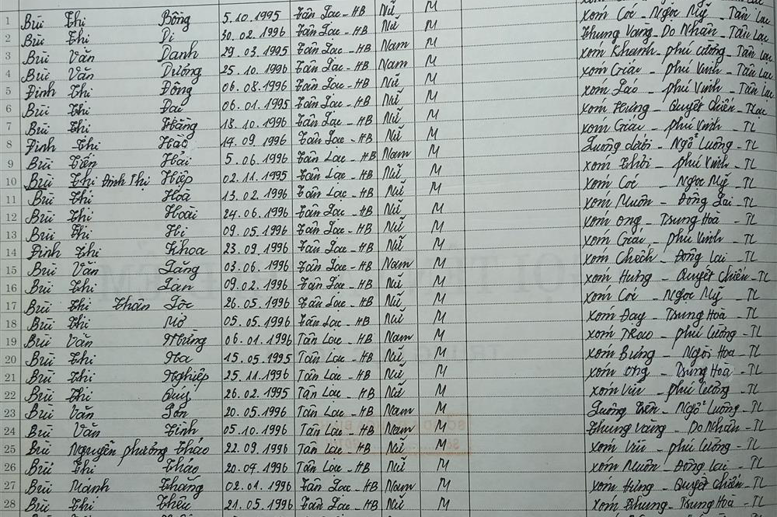 1 Bùi Thị Bông 5.10.1995 Tân Lạc - HB Nữ M xóm Cóc - Ngọc Mỹ - Tân Lạc
2 Bùi Thị Di 30.02.1996 Tân Lạc - HB Nữ M Khung Vang - Do Nhân - Tân Lạc
3 Bùi Văn Danh 29.03.1995 Tân Lạc - HB Nam M xóm Khanh - phú Cường - Tân Lạc
4 Bùi Văn Dương 25.10.1996 Tân Lạc - HB Nam M xóm Giác - phú Vinh - Tân Lạc
5 Đinh Thị Đông 06.08.1996 Tân Lạc - HB Nữ M xóm - phú Vinh - Tân Lạc
6 Bùi Thị Đại 06.01.1995 Tân Lạc - HB Nữ M xóm Hưng - Quyết Chiến - TLạc
7 Bùi Thị Hằng 18.10.1996 Tân Lạc - HB Nữ M xóm Giác - phú Vinh - TL
8 Đinh Thị Hảo 14.09.1996 Tân Lạc - HB Nữ M Luông dưới - Ngổ Luông - TL
9 Bùi Tiến Hải 5.06.1996 Tân Lạc - HB Nam M xóm - phú Vinh - TL
10 Bùi Thị Đinh Thị Hiệp 02.11.1995 Tân Lạc - HB Nữ M xóm Cóc - Ngọc Mỹ - TL
11 Bùi Thị Hoà 13.02.1996 Tân Lạc - HB Nữ M xóm Muôn - Đông Lai - TL
12 Bùi Thị Hoài 24.06.1996 Tân Lạc - HB Nữ M xóm Ong - Trung Hoà - TL
13 Bùi Thị Hi 09.05.1996 Tân Lạc - HB Nữ M xóm Giác - phú Vinh - TL
14 Đinh Thị Khoa 23.09.1996 Tân Lạc - HB Nữ M xóm Chiếch - Đông Lai - TL
15 Bùi Văn Lang 03.06.1996 Tân Lạc - HB Nam M xóm Hưng - Quyết Chiến - TL
16 Bùi Thị Lan 09.02.1996 Tân Lạc - HB Nữ M xóm Cóc - Ngọc Mỹ - TL
17 Bùi Thị Lộc 26.05.1996 Tân Lạc - HB Nữ M xóm Đay - Trung Hoà - TL
18 Bùi Thị Mơ 05.05.1996 Tân Lạc - HB Nữ M xóm Trao - phú Cường - TL
19 Bùi Văn 06.01.1996 Tân Lạc - HB Nam M xóm Bưng - Ngòi Hoa - TL
20 Bùi Thị Na 15.05.1995 Tân Lạc - HB Nữ M xóm Ong - Trung Hoà - TL
21 Bùi Thị Nghiệp 25.11.1996 Tân Lạc - HB Nữ M xóm Vui - phú Cường - TL
22 Bùi Thị Quý 26.02.1995 Tân Lạc - HB Nữ M Luông Trên - Ngổ Luông - TL
23 Bùi Văn 20.05.1996 Tân Lạc - HB Nam M Khung Vang - Do Nhân - TL
24 Bùi Văn Tinh 05.10.1996 Tân Lạc - HB Nam M xóm Vui - phú Cường - TL
25 Bùi Nguyễn phương Thảo 22.09.1996 Tân Lạc - HB Nữ M xóm Muôn - Đông Lai - TL
26 Bùi Thị Thảo 20.07.1996 Tân Lạc - HB Nữ M xóm Hưng - Quyết Chiến - TL
27 Bùi Mạnh Thắng 02.01.1996 Tân Lạc - HB Nam M xóm Khung - Trung Hoà - TL
28 Bùi Thị Thêu 21.05.1996 Tân Lạc - HB Nữ M